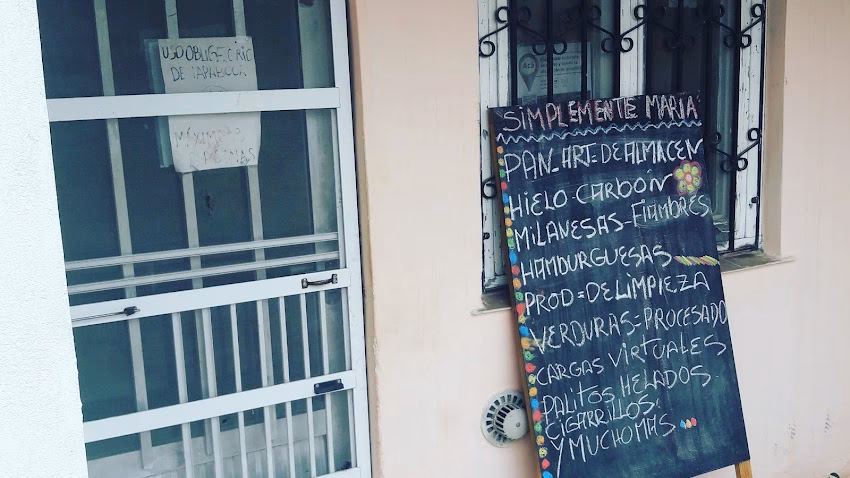 USO OBLIGATORIO
DE TAPABOCA
MÁXIMO
Acá
SIMPLEMENTE MARIA
PAN-ART=DE ALMACEN
HIELO-CARBÓN
MILANESAS-FIAMBRES
HAMBURGUESAS
PROD=DE LIMPIEZA
VERDURAS=PROCESADO
CARGAS VIRTUALES
PALITOS HELADOS
CIGARRILLOS.
Y MUCHO MAS